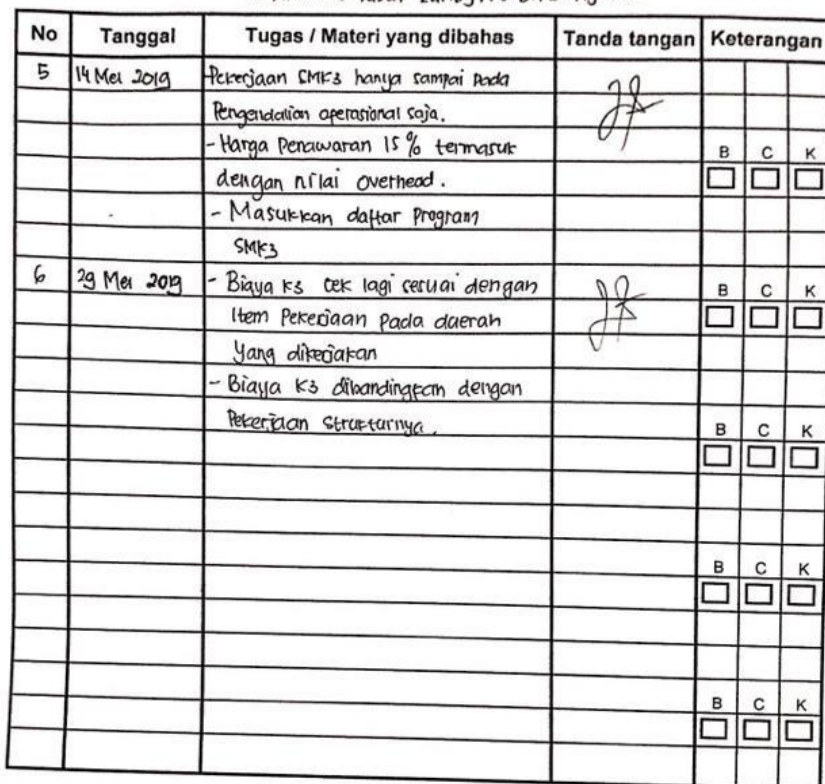 No Tanggal Tugas / Materi yang dibahas Tanda tangan Keterangan
5 14 Mei 2019 Pekerjaan SMK3 hanya sampai pada
Pengendalian operasional saja.
- Harga Penawaran 15 % termasuk
B C K
dengan nilai overhead.
- Masukkan daftar Program
SMK3
6 29 Mei 2019 - Biaya K3 cek lagi sesuai dengan
B C K
Item Pekerjaan pada daerah
yang dikerjakan
- Biaya K3 dibandingkan dengan
Pekerjaan strukturnya.
B C K
B C K
B C K